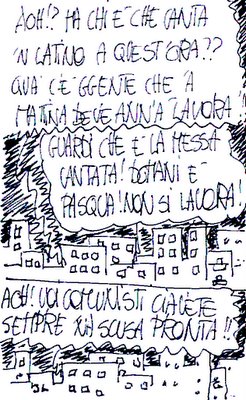 AOH!? MA CHI È CHE CANTA
'N LATINO A QUEST'ORA??
QUA C'È GGENTE CHE 'A
MATINA DEVE ANNÀ 'A LAVORÀ!
GUARDI CHE È LA MESSA
CANTATA! DOMANI È
PASQUA! NON SI LAVORA!
AOH! VOI COMUNISTI CIAVETE
SEMPRE 'NA SCUSA PRONTA!!